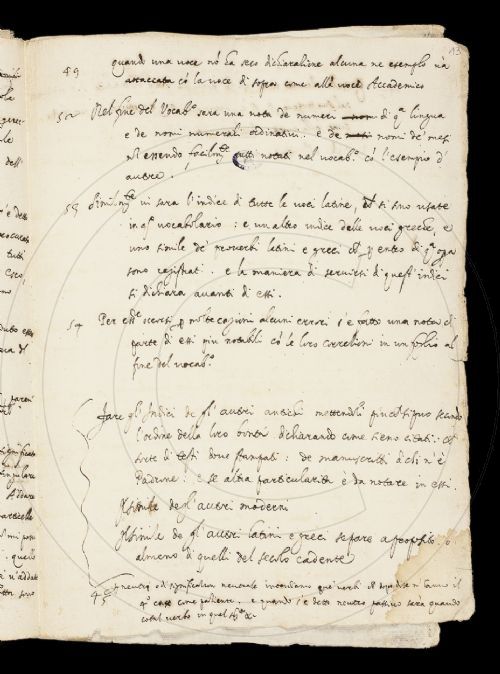 13
49 quando una voce nō ha seco dichiarazione alcuna ne esemplo uà
attaccata cō la voce di sopra come alla voce Accademico
52 Nel fine del Vocab.º sara una nota de numeri di q.ª lingua
e de nomi numerali ordinatiui. e de nomi de' mesi
essendo facilm.te tutti notati nel vocab.º cō l'esempio d'
autore.
53 Simil.mte vi sara l'indice di tutte le voci latine, si sno usate
in q.º vocabolario: e un altro indice delle voci greche, e
uno simile de' prouerbi latini e greci entro di q.ª opa
sono registrati. e la maniera di seruirsi di quest'indici
si dichiara auanti di essi.
54 Per essere scorsi p molte cagioni alcuni errori s'è posto una nota di
parte di essi piu notabili cō le loro correzioni in un foglio al
fine del vocab.º
Fare gl'Indici de gl'autori antichi mettendoli secondo
l'ordine della loro bontà dichiarando come sieno citati:
sorte di testi doue stampati: de manuscritti di chi n'è
Padrone: e se altra particularità è da notare in essi.
Il simile degl'autori moderni
Il simile de gl'autori latini e greci se pare a proposito. o
almeno di quelli del secolo cadente
45 neutro, o di significatum neutrale intendiamo que' verbi il
q.º caso come paziente. e quando s'è detto neutro passiuo sarà quando
cotal verbo in quel sig.º &c